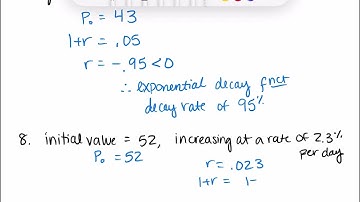 P₀ = 43
1+r = .05
r = -.95 < 0
∴ exponential decay fnct
decay rate of 95%
8. initial value = 52, increasing at a rate of 2.3%
per day
P₀ = 52
r = .023
1+r = 1-